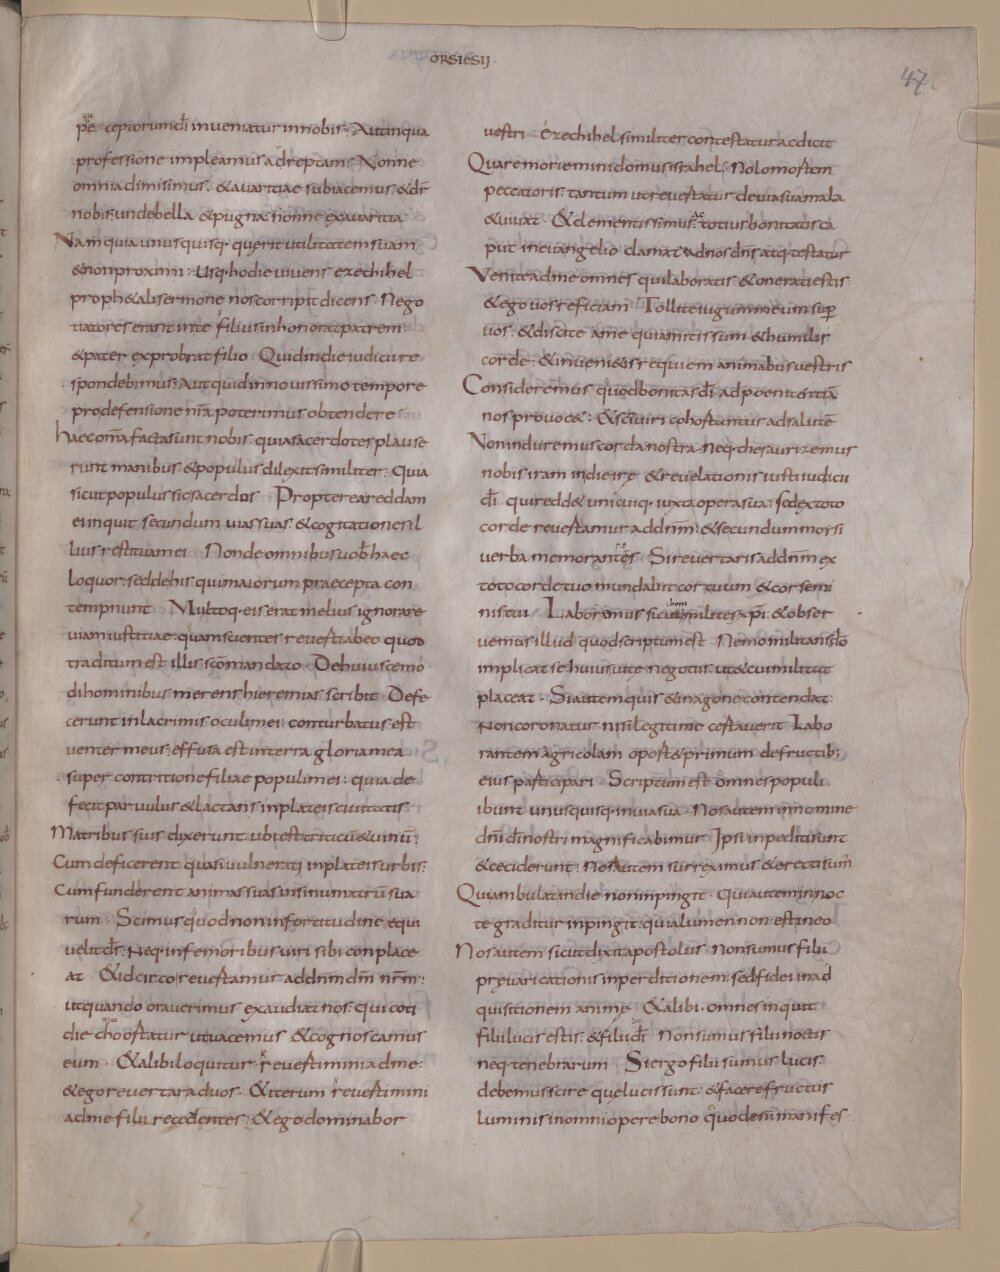 ORSIESIJ
47.
pẽ ceptorum dĩ inveniatur in nobis. Aut in qua
professione impleamus adreptam. Nonne
omnia dimisimus. & avaritiae subiacemus. & dr̃
nobis. unde bella & pugna. si nonne ex avaritia
Nam quia unusquisq. querit utilitatem suam
& non proximi. Usq. hodie vivens ezechihel
proph&ali sermone nos corripit dicens. Nego
tiatores erant in te filius inhonorat patrem
& pater exprobrat filio Quid in die iudicii re
spondebimus. Aut quid in novissimo tempore
pro defensione nr̃a poterimus obtendere
haec om̃a facta sunt nobis. quia sacerdotes plause
runt manibus & populus dilexit similiter. Quia
sicut populus sic sacerdos Propterea reddam
ei inquit secundum vias suas. & cogitationes il
lius restituam ei Non de omnibus vob̃ haec
loquor. sed de his qui maiorum praecepta con
tempnunt Multoq. eis erat melius ignorare
viam iustitiae. quam scientes reverti ab eo quod
traditum est illis sc̃o mandato. De huiuscemo
di hominibus merens hieremias scribit Defe
cerunt in lacrimis oculi mei. conturbatus est
venter meus. effusa est in terra gloria mea
super contritione filiae populi mei. quia de
fecit parvulus & lactans in plateis civitatis
Matribus suis dixerunt. ubi est triticũ & vinũ.
Cum deficerent quasi vulnerati in plateis urbis.
Cum funderent animas suas in sinu matrũ sua
rum Scimus quod non in fortitudine equi
velit dr̃. Neq. in femoribus viri sibi conplace
at & idcirco revertamur ad dnm̃ dm̃ nr̃m.
ut quando oraverimus exaudiat nos. qui coti
die chohortatur ut vacemus & cognoscamus
eum & alibi loquitur revertimini ad me.
& ego revertar ad vos. & iterum revertimini
ad me filii recedentes. & ego dominabor
vestri. Ezechihel similiter contestatur ac dicit
Quare moriemini domus israhel. Nolo mortem
peccatoris. tantum ut revertatur de via sua mala
& vivat. & clementissimus. totius bonitatis ca
put in evangelio clamat ad nos dns̃ atq. testatur
Venite ad me omnes qui laboratis & onerati estis
& ego vos reficiam Tollite iugum meum sup
vos. & discite a me quia mitis sum & humilis
corde. & inveni&is requiem animabus vestris
Consideremus quod bonitas dĩ ad poenitentiã
nos provoc&. & sc̃i viri cohortantur ad salutẽ
Non induremus corda nostra. Neq. thesaurizemus
nobis iram in die irę & revelationis iusti iudicii
dĩ. qui redd& unicuiq. iuxta opera sua. sed ex toto
corde revertamur ad dnm̃. & secundum morsi
verba memorantes. Si revertaris ad dnm̃ ex
toto corde tuo mundabit cor tuum & cor semi
nis tui Laboremus sicut boni milites xp̃i. & obser
vemus illud quod scriptum est Nemo militans dõ
implicat se huius vite negotiis. ut ei cui militat
placeat. Si autem quis & in agone contendat
Non coronatur nisi legitime certaverit. Labo
rantem agricolam oport& primum de fructib;
eius participari Scriptum est omnes populi
ibunt unusquisq. in via sua Nos autem in nomine
dnĩ dĩ nostri magnificabimur Ipsi inpediti sunt
& ceciderunt. Nos autem surreximus & erecti sum̃
Qui ambulat in die non inpingit. Qui autem in noc
te graditur inpingit. quia lumen non est in eo
Nos autem sicut dixit apostolus. Non sumus filii
pręvaricationis in perditionem. sed fidei in ad
quisitionem animę & alibi. omnes inquit
filii lucis estis. & filii dĩ Non sumus filii noctis
neq. tenebrarum Si ergo filii sumus lucis.
debemus scire que lucis sunt. & facere fructus
luminis in omni opere bono quod enim manifes